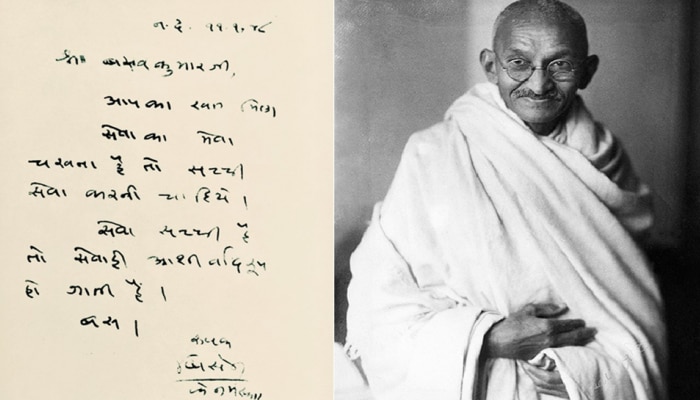 न. दे. ११-१-४८
श्री कुमारजी,
आपका खत मिला
सेवा का मेवा
चखना है तो सच्ची
सेवा करनी चाहिये।
सेवा सच्ची है
तो सेवाही आशीर्वादरूप
हो जाती है।
बस।